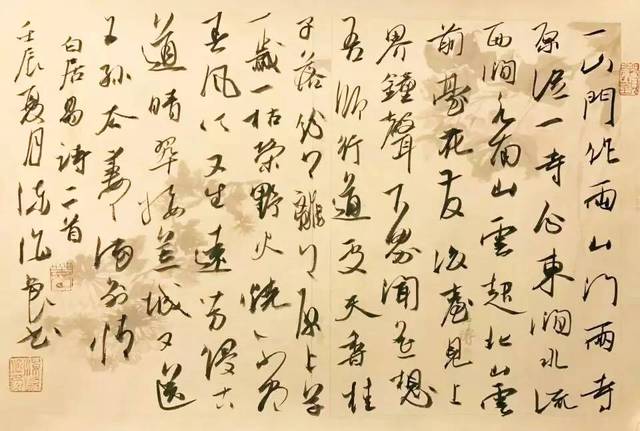 一山門作兩山門兩寺
原從一寺分東澗水流
西澗水南山雲起北山雲
前臺花發後臺見上
界鐘聲下界聞遙想
吾師行道處天香桂
子落紛々離々原上草
一歲一枯榮野火燒不盡
春風吹又生遠芳侵古
道晴翠接荒城又送
王孫去萋々滿別情
白居易詩二首
壬辰夏月